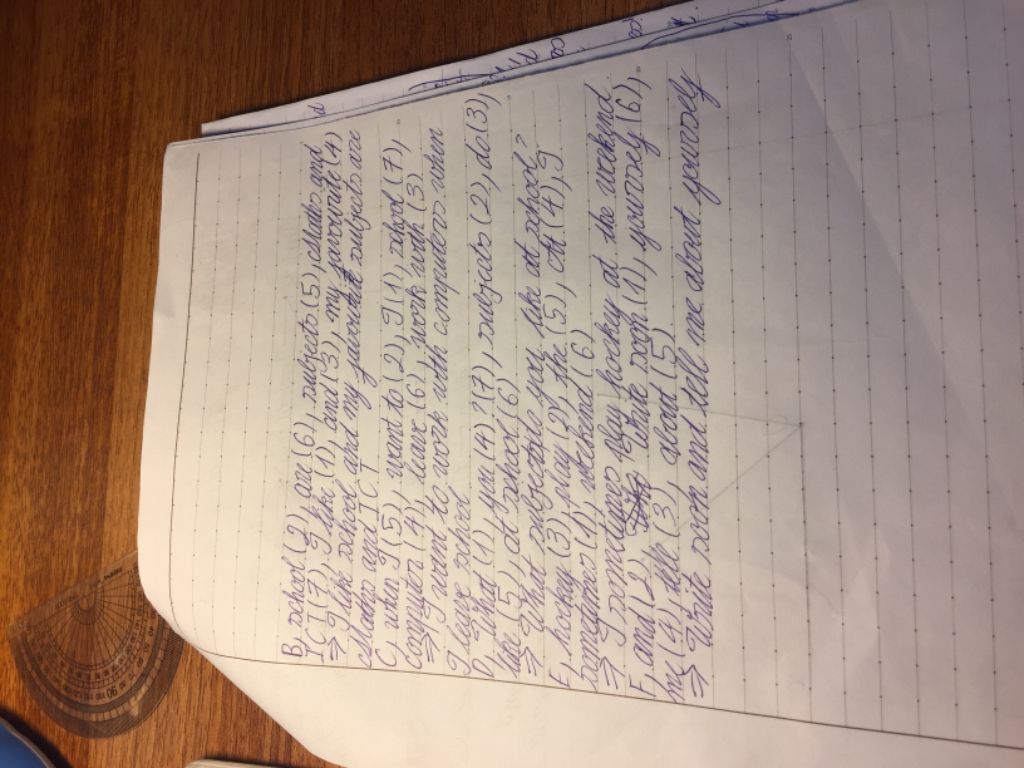 B, school (2), are (6), subjects (5), Maths and
ICT (7), I like (1), and (3), my favourite (4)
=> I like school and my favourite subjects are
Maths and ICT
C, when I (5), want to (2), I (1), school (7),
computers (4), leave (6), work with (3)
=> I want to work with computers when
I leave school
D, What (1), you (4), ? (7), subjects (2), do (3),
like (5), at school (6)
=> What subjects do you like at school?
E, hockey (3), play (2), the (5), at (4), I
sometimes (1), weekend (6)
=> I sometimes play hockey at the weekend
F, and (2), Write soon (1), yourself (6),
me (4), tell (3), about (5)
=> Write soon and tell me about yourself